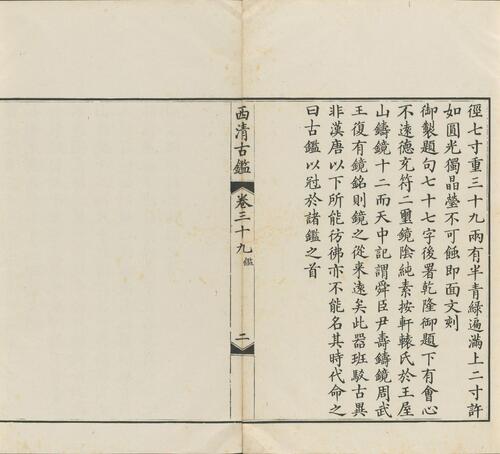 徑七寸重三十九兩有半青緑遍滿上二寸許
如圓光獨晶瑩不可蝕即面文刻
御製題句七十七字後署乾隆御題下有會心
不遠德充符二璽鏡陰純素按軒轅氏於王屋
山鑄鏡十二而天中記謂舜臣尹壽鑄鏡周武
王復有鏡銘則鏡之從來遠矣此器班駮古異
非漢唐以下所能彷彿亦不能名其時代命之
曰古鑑以冠於諸鑑之首
西清古鑑 卷三十九 鑑 二